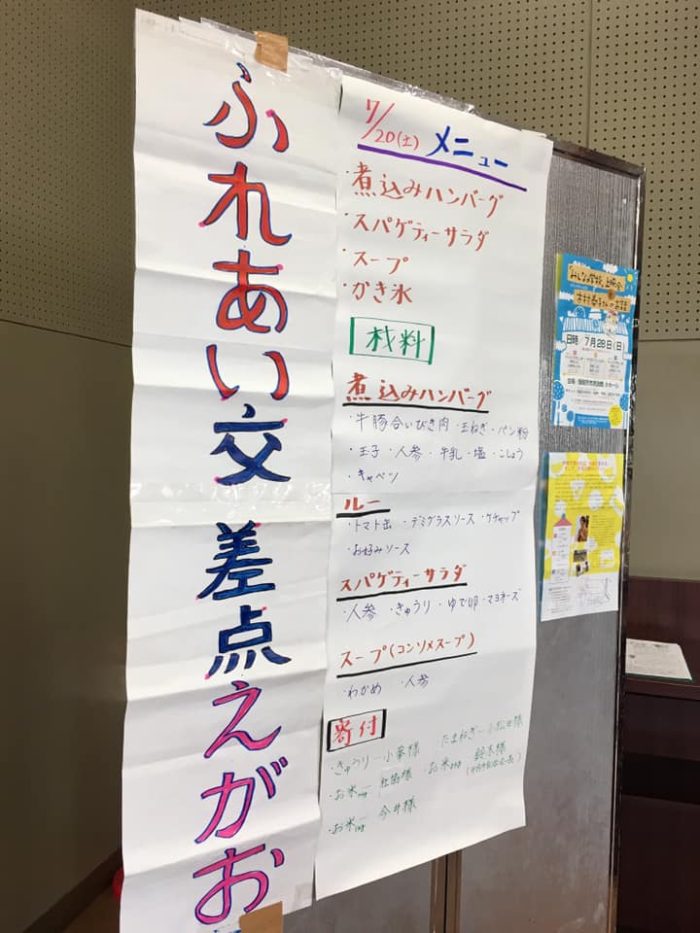 ふれあい交差点えがお
7/20(土) メニュー
・煮込みハンバーグ
・スパゲティーサラダ
・スープ
・かき氷
材料
煮込みハンバーグ
・牛豚合いびき肉 ・玉ねぎ ・パン粉
・玉子 ・人参 ・牛乳 ・塩 ・こしょう
・キャベツ
ルー
・トマト缶 ・デミグラスソース ・ケチャップ
・お好みソース
スパゲティーサラダ
・人参 ・きゅうり ・ゆで卵 ・マヨネーズ
スープ(コンソメスープ)
・わかめ ・人参
寄付
・きゅうり 様 ・たまねぎ 様
・お米 様 ・お米 鈴木様
・お米 今井様
日時 7月28日(日)